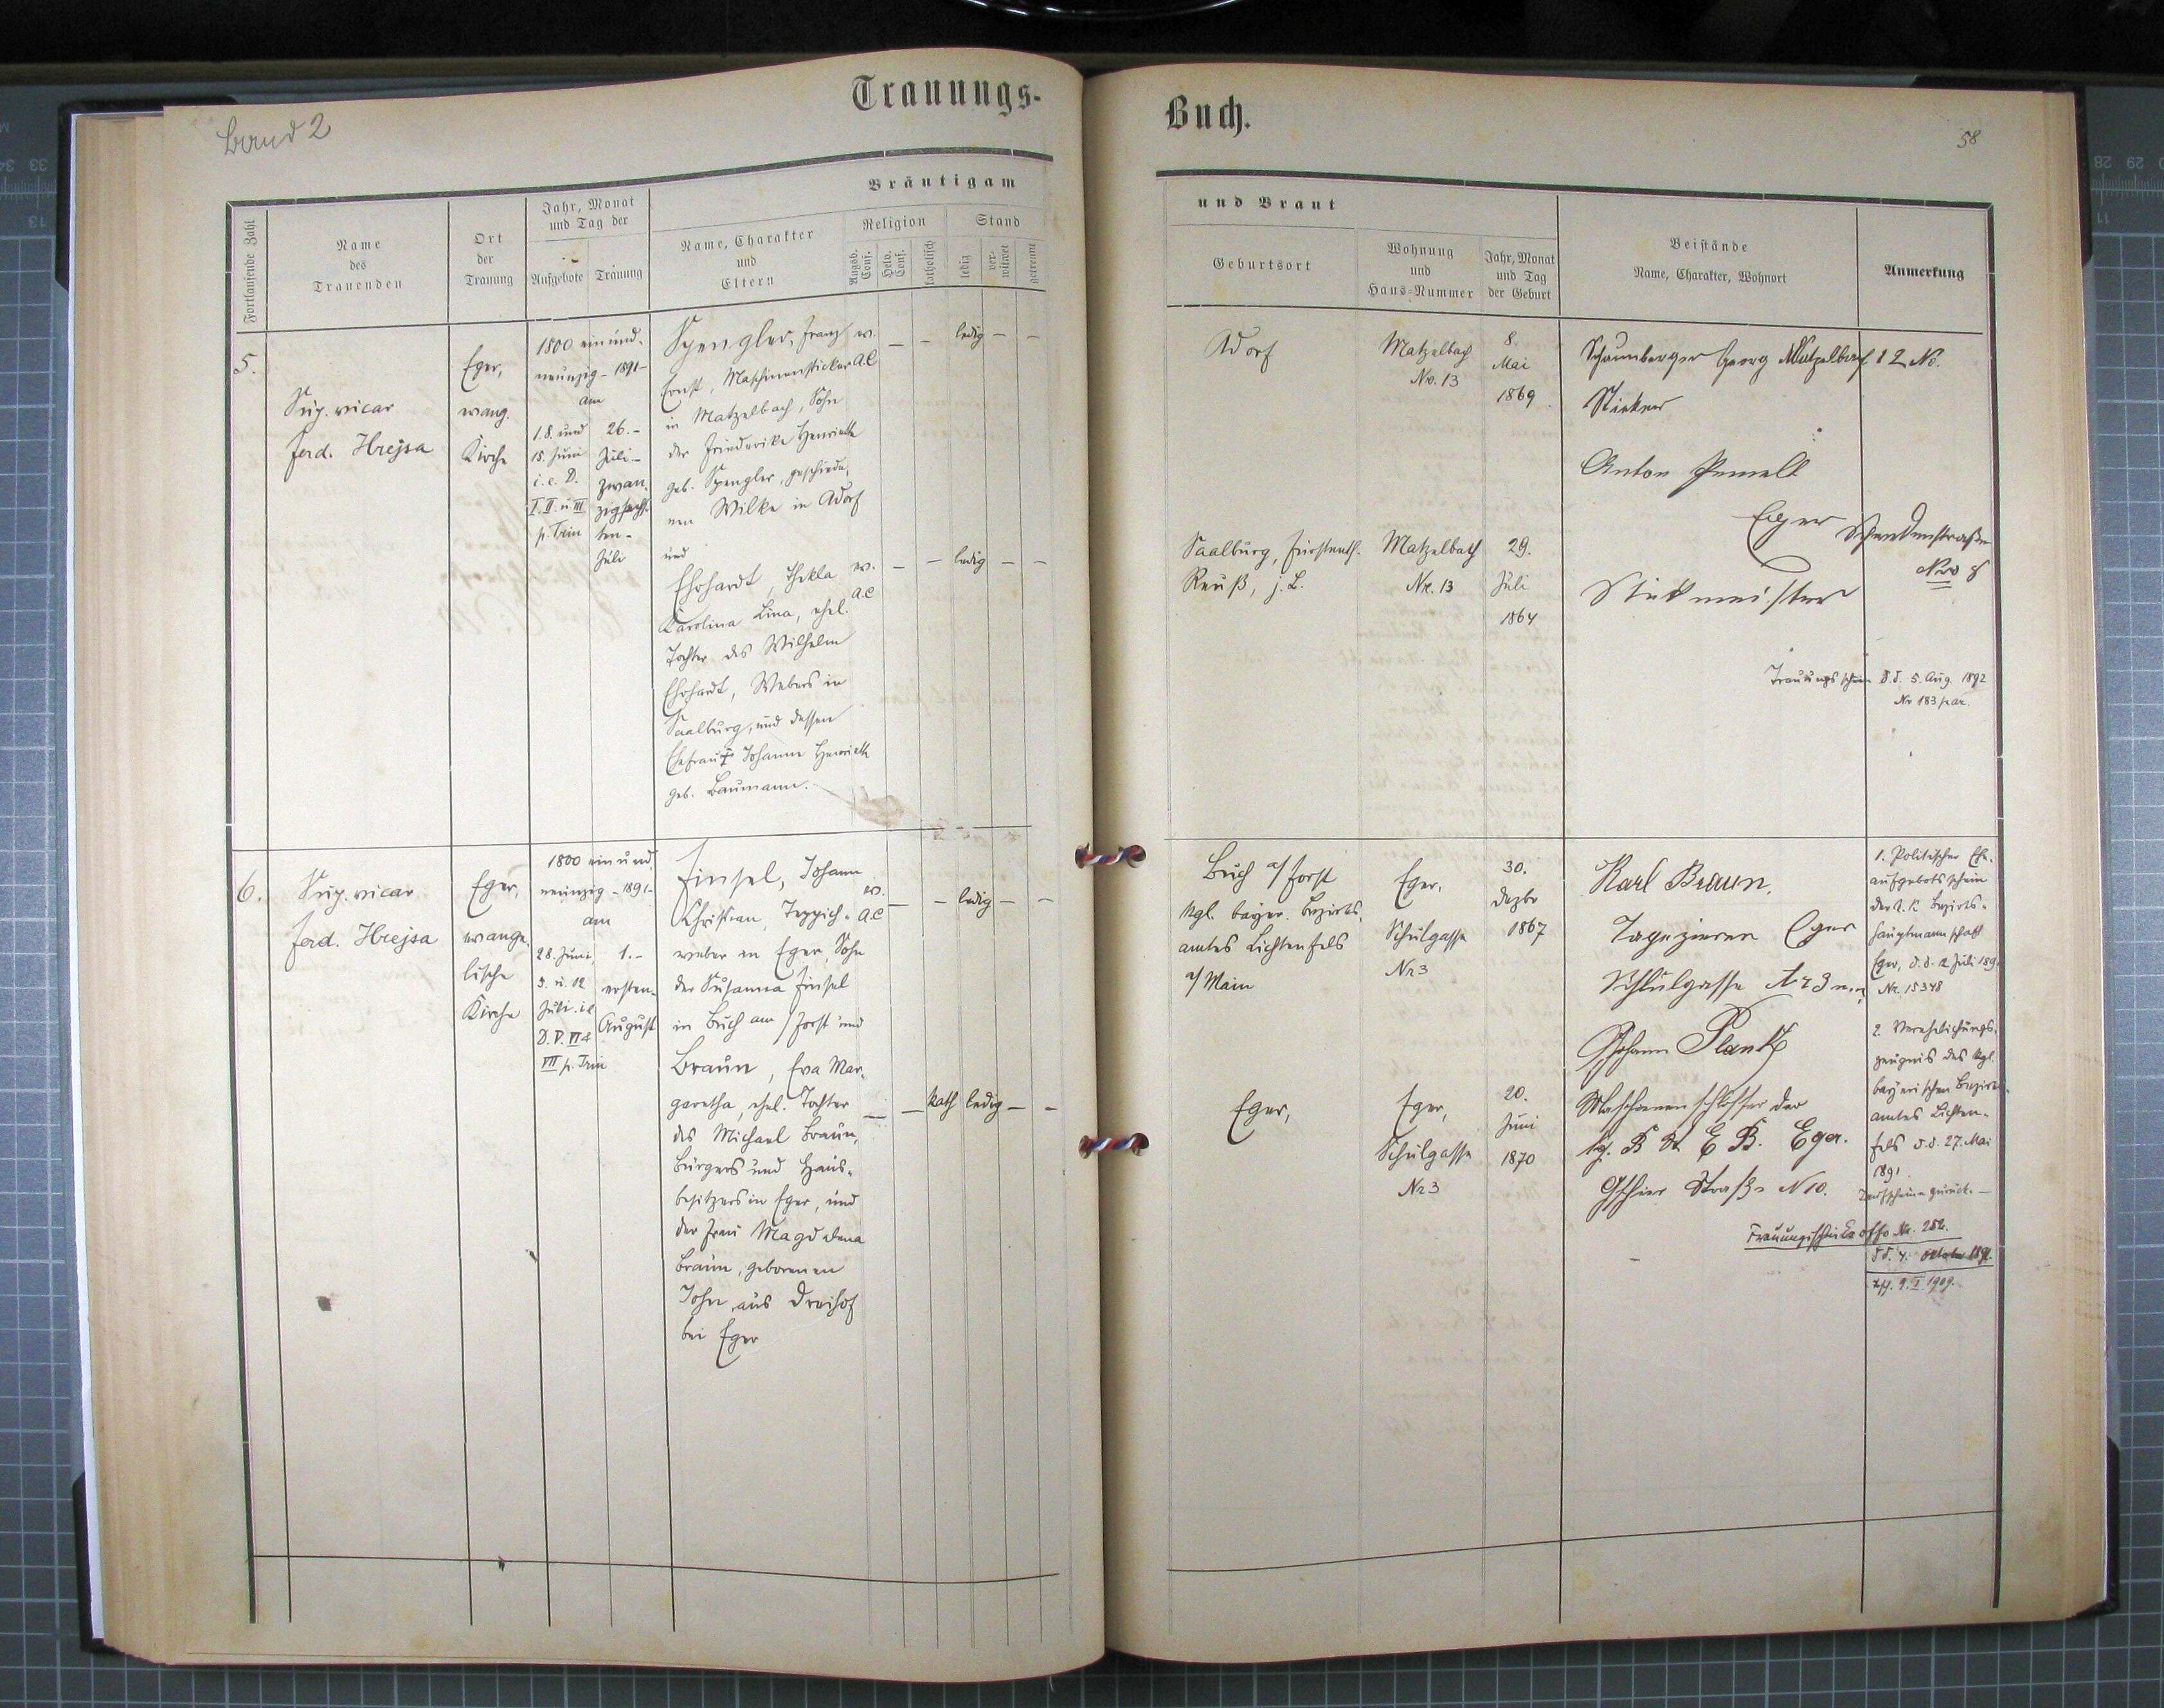 Trauungs-
Buch.
Band 2
58
Bräutigam
und Braut
Fortlaufende Zahl
Name
des
Trauenden
Ort
der
Trauung
Jahr, Monat
und Tag der
Aufgebote
Trauung
Name, Charakter
und
Eltern
Religion
Augsb. Conf.
Helv. Conf.
katholisch
Stand
ledig
ver-
witwet
getrennt
Geburtsort
Wohnung
und
Haus-Nummer
Jahr, Monat
und Tag
der Geburt
Beistände
Name, Charakter, Wohnort
Anmerkung
5.
Sup. vicar
Ferd. Hrejsa
Eger,
evang.
Kirche
1800 einund-
neunzig - 1891 -
am
1.8. und
15. Juni
i. e. D.
I. II. u. III
p. Trin
26. -
Juli -
zwan-
zigsechs-
ten -
Juli
Spengler, Franz
Ernst, Maschinensticker
in Matzelbach, Sohn
der Friederike Henriette
geb. Spengler, geschiede-
nen Wilke in Adorf
und
ev.
A.C
— — ledig — —
Ehrhardt, Thekla
Karolina Lina, ehel.
Tochter des Wilhelm
Ehrhardt, Webers in
Saalburg, und dessen
Ehefrau Johanne Henriette
geb. Baumann.
ev.
a.C
— — ledig — —
Adorf
Matzelbach
Nr. 13
8.
Mai
1869
Saalburg, Fürstenth.
Reuß, j. L.
Matzelbach
Nr. 13
29.
Juli
1864
Schaumberger Georg Matzelbach 12 No.
Sticker
Anton
Eger
No 8
Stickmeister
Trauungsschein d.d. 5. Aug. 1892
Nr 183 par.
6.
Sup. vicar
Ferd. Hrejsa
Eger,
evange-
lische
Kirche
1800 einund
neunzig - 1891 -
am
28. Juni,
5. u. 12
Juli. i.e.
D. V. VI &
VII p. Trin
1. -
ersten -
August
Finsel, Johann
Christian, Teppich-
weber in Eger, Sohn
der Susanna Finsel
in Buch am / Forst und
ev.
A.C
— — ledig — —
Braun, Eva Mar-
garetha, ehel. Tochter
des Michael Braun,
Bürgers und Haus-
besitzers in Eger, und
der Frau Magdalena
Braun, geborenen
John, aus Dreihof
bei Eger
— — kath ledig — —
Buch a/ Forst
kgl. bayer. Bezirks-
amtes Lichtenfels
a/ Main
Eger,
Schulgasse
Nr 3
30.
Dezbr
1867
Eger,
Eger,
Schulgasse
Nr 3
20.
Juni
1870
Karl Braun,
Tapezierer Eger
Schulgasse Nr 3
Johann Plank
Maschinenschlosser der
B E B. Eger.
Straße N 10.
1. Politischer Ehe-
aufgebotsschein
der k. k Bezirks-
hauptmannschaft
Eger, d. d. 12 Juli 1891
Nr. 15348
2. Verehelichungs-
zeugnis des kgl.
bayerischen Bezirks-
amtes Lichten-
fels d. d. 27. Mai
1891.
Taufscheine zurück. —
Trauungsschein
d. d. 4. Oktober 1891.
9. I. 1909.